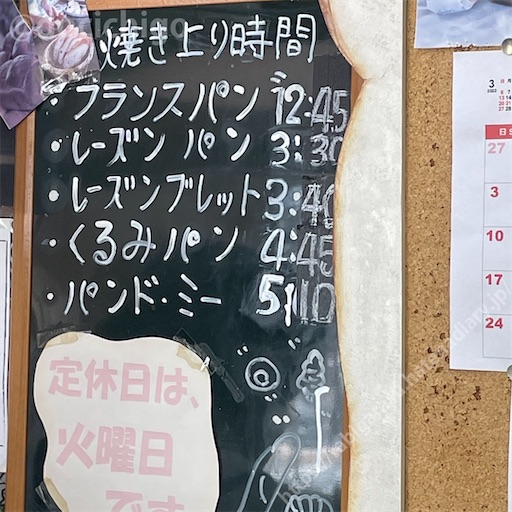 焼き上り時間
・フランスパン 12:45
・レーズン パン 3:30
・レーズンブレット 3:40
・くるみパン 4:45
・パンド・ミー 5:10
定休日は、
火曜日
です
3
日 月
27
3
10
17
24